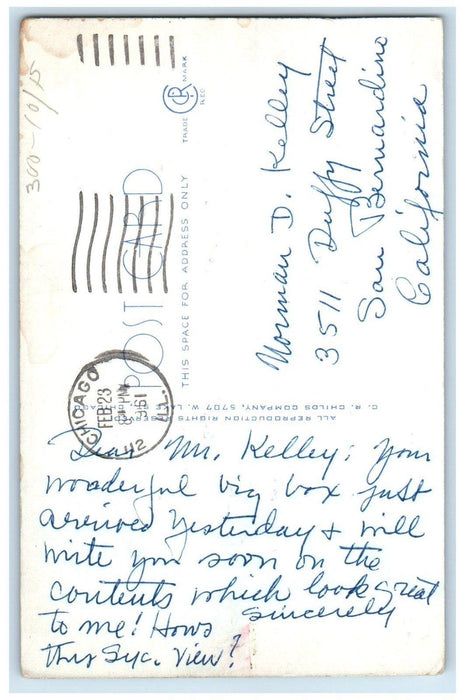 300-10/15
POST CARD
THIS SPACE FOR ADDRESS ONLY
TRADE MARK
REG.
CHICAGO
FEB 23
PM
1961
ILL.
12
Norman D. Kelley
3511 Duffy Street
San Bernardino
California
ALL REPRODUCTION RIGHTS RESERVED
C. R. CHILDS COMPANY, 5707 W. LAKE ST., CHICAGO
Dear Mr. Kelley: Your
wonderful big box just
arrived yesterday & will
write you soon on the
contents which look great
to me! Hows sincerely
this Syc. View?